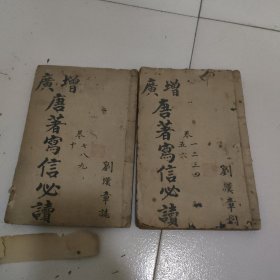 增廣
唐著寫信必讀
卷一二三四
五六
劉漢章
增廣
唐著寫信必讀
卷七八九
十
劉漢章誌